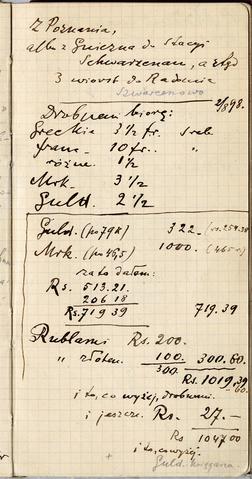 Z Poznania,
albo z Gniezna do Stacyi
Schwarzenau, a stąd
3 wiorst do Radomia
Szwarcenowo
2/8 98.
Drobnemi biorę:
Greckie 3 1/2 fr. sreb.
franc. 10 fr. "
różne. 1 1/2
Mrk. 3 1/2
Guld. 2 1/2
Guld. (po 79 k) 322.
Mrk. (po 46,5) 1000. (465 —)
za to dałem:
Rs. 513.21.
206 18
Rs. 719 39 719.39
Rublami Rs. 200.
" złotem. 100. 300.60.
300.
Rs. 1019.39
60.
i to, co wyżej, drobnemi.
i jeszcze. Rs. 27.—
Rs 1047 00
i to, co wyżej.
Guld.